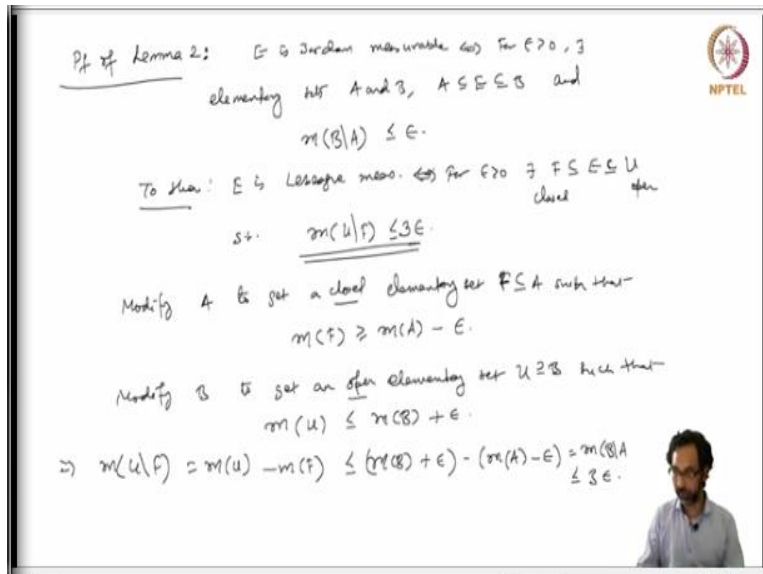 Pf of Lemma 2: E is Jordan measurable ⇔ For ε>0, ∃
elementary sets A and B, A ⊆ E ⊆ B and
m(B\A) ≤ ε.
NPTEL
To show: E is Lebesgue meas. ⇔ For ε>0 ∃ F ⊆ E ⊆ U
closed open
s.t. m(U\F) ≤ 3ε.
Modify A to get a closed elementary set F ⊆ A such that
m(F) ≥ m(A) - ε.
Modify B to get an open elementary set U ⊇ B such that
m(U) ≤ m(B) + ε.
⇒ m(U\F) = m(U) - m(F) ≤ (m(B) + ε) - (m(A) - ε) = m(B\A
≤ 3ε.